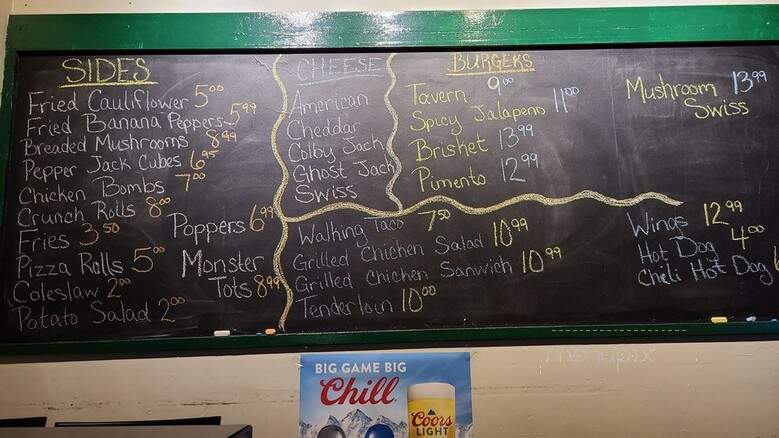 SIDES
Fried Cauliflower 5.00
Fried Banana Peppers 5.99
Breaded Mushrooms 8.99
Pepper Jack Cubes 6.95
Chicken Bombs 7.00
Crunch Rolls 8.00
Fries 3.50
Pizza Rolls 5.00
Coleslaw 2.00
Potato Salad 2.00
Poppers 6.99
Monster
Tots 8.99
CHEESE
American
Cheddar
Colby Jack
Ghost Jack
Swiss
BURGERS
Tavern 9.00
Spicy Jalapeno 11.00
Brisket 13.99
Pimento 12.99
Mushroom 13.99
Swiss
Walking Taco 7.50
Grilled Chicken Salad 10.99
Grilled Chicken Sanwich 10.99
Tenderloin 10.00
Wings 12.99
Hot Dog 4.00
Chili Hot Dog
BIG GAME BIG
Chill
Coors
LIGHT